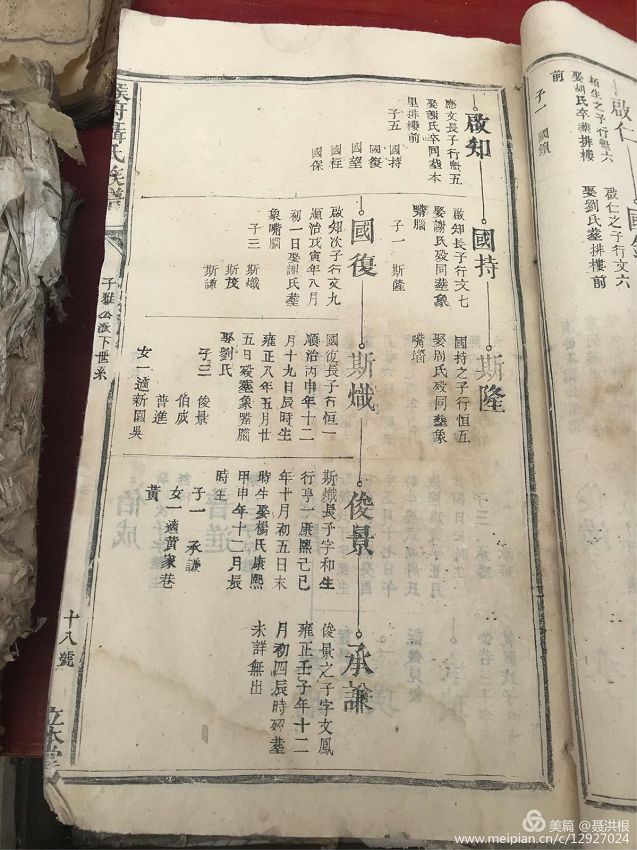 啟仁
栢生之子行暫六
娶胡氏卒葬排樓
前
子一 國鎮
啟仁之子行文六
娶劉氏葬排樓
前
啟知
應文長子行暫五
娶謝氏卒同葬本
里排樓前
子五 國持
國復
國望
國柱
國保
國持
啟知長子行文七
娶謝氏殁同葬象
嘴腦
子一 斯隆
斯隆
國持之子行恒五
娶周氏殁同葬象
嘴堖
國復
啟知次子行文九
順治戊寅年八月
初一日娶謝氏葬
象嘴腦
子三 斯熾
斯茂
斯謙
斯熾
國復長子行恒一
順治丙申年十二
月十九日辰時生
雍正八年五月廿
五日殁葬象嘴腦
娶劉氏
子三 俊景
伯成
普進
女一適新園吳
俊景
斯熾長子字和生
行亨一康熙己巳
年十月初五日未
時生娶楊氏康熙
甲申年十二月辰
時生
子一 承謙
女一適黃家巷
黃
承謙
俊景之子字文鳳
雍正壬子年十二
月初四辰時殁葬
未詳無出
聶氏族譜
子雅公派下世系
十八號
立本堂
美篇 @聂洪根
www.meipian.cn/c/12927024